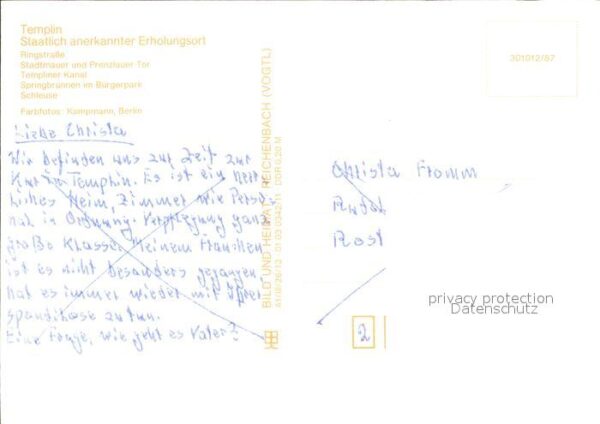 Templin
Staatlich anerkannter Erholungsort
Ringstraße
Stadtmauer und Prenzlauer Tor
Templiner Kanal
Springbrunnen im Bürgerpark
Schleuse
Farbfotos: Kampmann, Berlin
Liebe Christa
Wir befinden uns zur Zeit zur
Kur in Templin. Es ist ein herr
liches Heim, Zimmer wie Perso-
nal in Ordnung. Verpflegung ganz
große Klasse. Meinem Frauchen
ist es nicht besonders gegangen,
hat es immer wieder mit ihrer
zu tun.
Eine Frage, wie geht es Vater?
BILD UND HEIMAT REICHENBACH (VOGTL)
A1/III/26/13 01 03 DDR 0,20 M
301012/87
Christa Fromm
Rost
2
privacy protection
Datenschutz